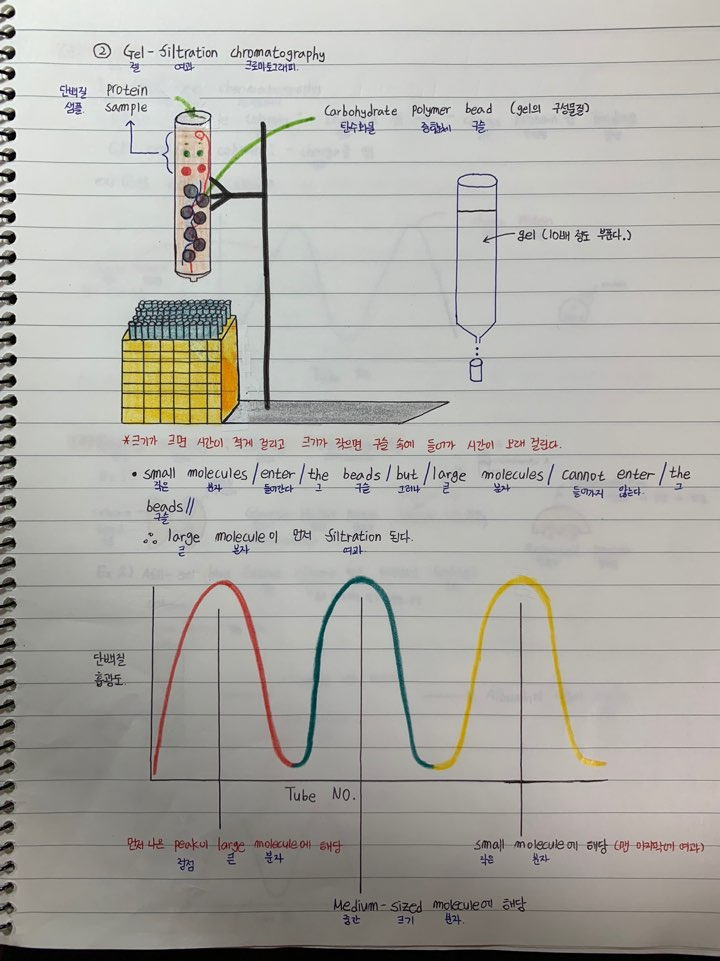 ② Gel-filtration chromatography
젤 여과 크로마토그래피.
단백질 protein
샘플. sample
Carbohydrate polymer bead (gel의 구성물질)
탄수화물 중합체 구슬.
gel (10배 정도 부푼다.)
*크기가 크면 시간이 적게 걸리고 크기가 작으면 구슬 속에 들어가 시간이 오래 걸린다.
• small molecules/enter/the beads/but/large molecules/cannot enter/the
작은 분자 들어간다 그 구슬 그러나 큰 분자 들어가지 않는다. 그
beads//
구슬
∴ large molecule이 먼저 filtration 된다.
큰 분자 여과.
단백질
흡광도.
Tube NO.
먼저 나온 peak이 large molecule에 해당
정점 큰 분자
small molecule에 해당 (맨 마지막에 여과)
작은 분자
Medium-sized molecule에 해당
중간 크기 분자.